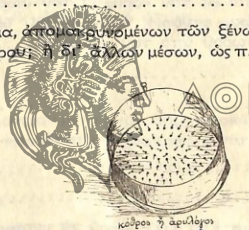 α, ἀπομακρυνομένων τῶν ξένω
ρου; ἢ δι' ἄλλων μέσων, ὡς π
κόθρος ἢ ἀριλόγος